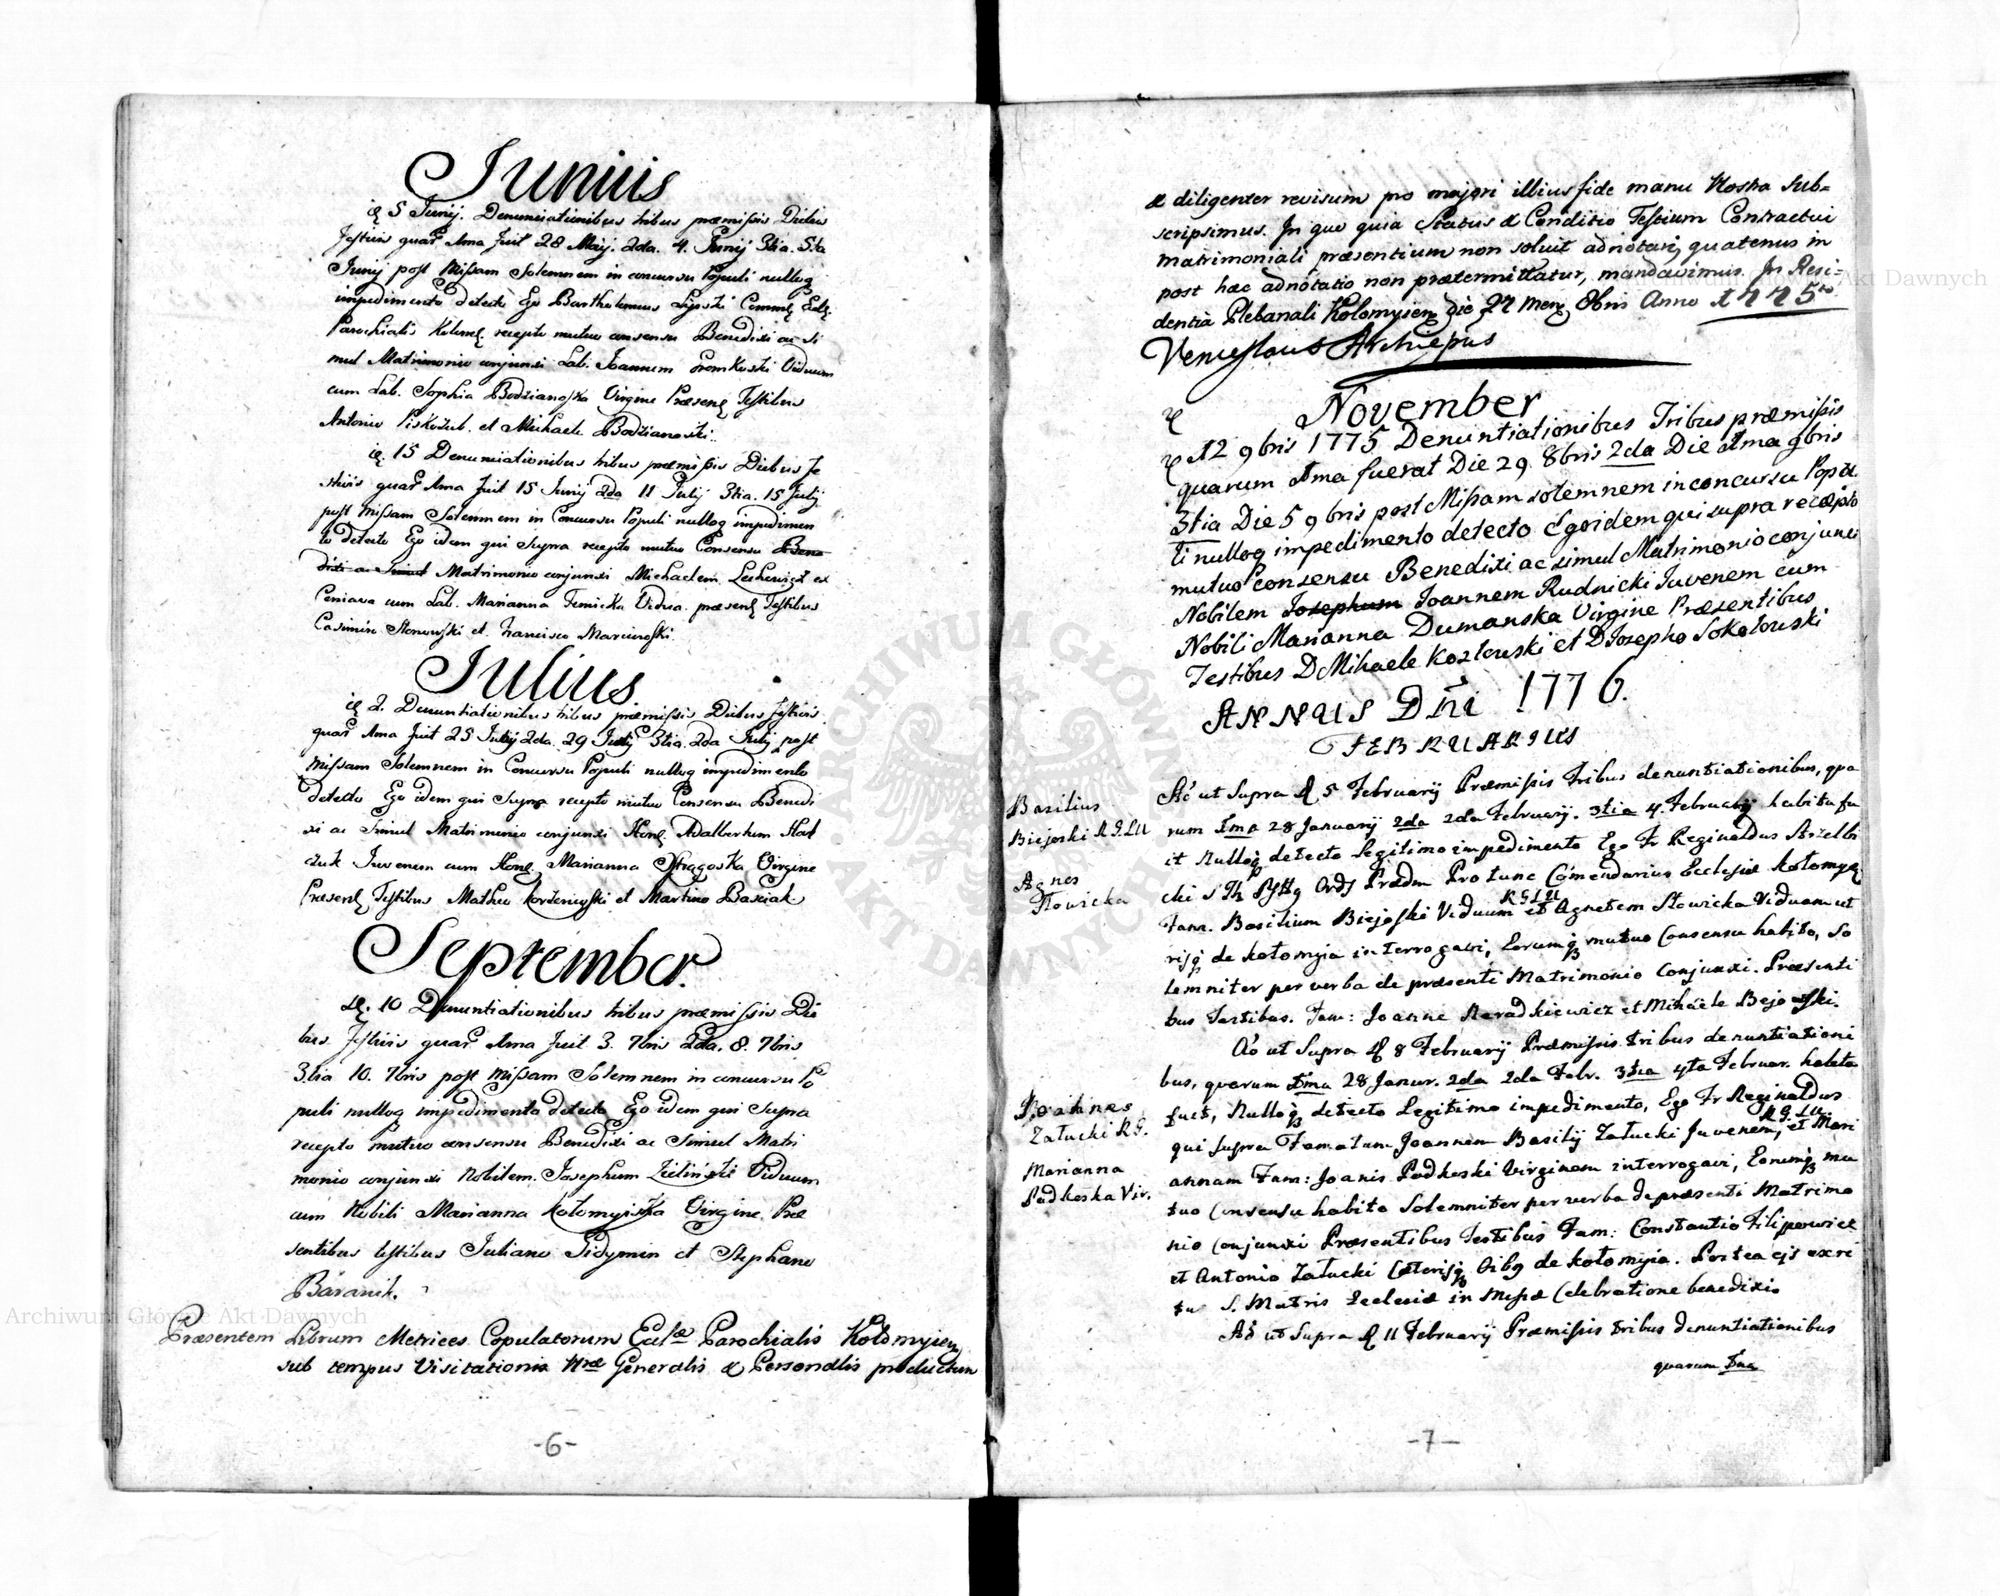 Junius
5 Junij. Denunciationibus tribus præmissis Diebus
Festivis quar. 1ma fuit 28 Maij. 2da. 4. Junij 3tia. 5ta
Junij post Missam Solemnem in concursu Populi nulloq
impedimento detecto Ego Bartholomeus Lipski Comme
Parochialis Kolom. recepto mutuo consensu Benedixi ac si
mul Matrimonio conjunxi Lab. Joannem Viduum
cum Lab. Sophia Bodzianoska Virgine Præsen Testibus
Antonio Piskozub. et Michaele Bodzianoski.
15 Denunciationibus tribus præmissis Diebus Fe
stivis quar. 1ma fuit 15 Junij 2da 11 Julij 3tia. 15 Julij
post Missam Solemnem in Concursu Populi nulloq impedimen
to detecto Ego idem qui Supra recepto mutuo Consensu Bene
dixi ac Simul Matrimonio conjunxi Michaelem ex
cum Lab. Marianna Vidua. præsen Testibus
Casimiro et. Francisco
Julius
2. Denuntiationibus tribus præmissis Diebus Festivis
quar. 1ma fuit 25 2da. 29 3tia. 2da Julij post
Missam Solemnem in Concursu Populi nulloq impedimento
detecto Ego idem qui Supra recepto mutuo Consensu Benedi
xi ac Simul Matrimonio conjunxi Hon. Adalbertum
Juvenem cum Hon. Marianna Virgine
Præsen Testibus Matheo et Martino
September.
10 Denuntiationibus tribus præmissis Die
bus Festivis quar. 1ma fuit 3. 7bris 2da. 8. 7bris
3tia 10. 7bris post Missam Solemnem in concursu Po
puli nulloq impedimento detecto Ego idem qui Supra
recepto mutuo consensu Benedixi ac Simul Matri
monio conjunxi Nobilem. Josephum Zielinski Viduum
cum Nobili Marianna Kołomyiska Virgine. Præ
sentibus testibus Juliano et Stephano
Baranik.
Præsentem Librum Metrices Copulatorum Eccl. Parochialis Kołomyien
sub tempus Visitationis Nræ Generalis & Personalis productum
-6-
& diligenter revisum pro majori illius fide manu Nostra Sub=
scripsimus. In quo quia Status & Conditio Testium Contractui
matrimoniali præsentium non soluit adnotari, quatenus in
post hac adnotatio non prætermittatur, mandavimus. In Resi=
dentia Plebanali Kołomyien die 27 men 8bris Anno 1775to
Venceslaus Archiepus
November
12 9bris 1775 Denuntiationibus Tribus præmissis
quarum 1ma fuerat Die 29 8bris 2da Die 1ma 9bris
3tia Die 5 9bris post Missam solemnem in concursu Popu
li nulloq impedimento detecto Ego idem qui supra recepto
mutuo Consensu Benedixi ac simul Matrimonio conjunxi
Nobilem Josephum Joannem Rudnicki Juvenem cum
Nobili Marianna Dumanska Virgine Præsentibus
Testibus D Mihaele Kozłowski et D Josepho Sokołowski
ANNUS Dni 1776.
FEBRUARIUS
Ao ut Supra D 5 Februarij Præmissis tribus denuntiationibus, qua
rum 1ma 28 Januarij 2da 2da Februarij. 3tia 4. Februarij habita fu
it Nulloq detecto legitimo impedimento Ego Fr Reginaldus
Ord Præd Pro tunc Commendarius Ecclesiæ Kołomy
Fam. Basilium Biejoski Viduum R G L U et Agnetem Słowicka Viduam ut
risq de Kołomyia interrogavi, Eorumq mutuo Consensu habito, So
lemniter per verba de præsenti Matrimonio Conjunxi. Præsenti
bus Testibus. Fam: Joanne et Mihaele Bejoski.
Ao ut Supra D 8 Februarij Præmissis tribus denuntiationi
bus, quarum 1ma 28 Januar. 2da 2da Febr. 3tia 4ta Februar. habita
fuit, Nulloq detecto Legitimo impedimento, Ego Fr Reginaldus
qui supra Famatum Joannem Basilij Załucki Juvenem, R G L U et Mari
annam Fam: Joanis Padkoski Virginem interrogavi, Eorumq mu
tuo Consensu habito Solemniter per verba de præsenti Matrimo
nio Conjunxi Præsentibus Testibus Fam: Constantio Filipowicz
et Antonio Załucki Cæterisq de Kołomyia. Postea ex ri
tu S. Matris Ecclesiæ in Missæ Celebratione benedixi.
Ao ut Supra D 11 Februarij Præmissis tribus denuntiationibus
quarum 1ma
Basilius
Biejoski R G L U
Agnes
Słowicka
Joannes
Załucki R G.
Marianna
Padkoska Vir.
-7-
Archiwum Główne Akt Dawnych
Archiwum Główne Akt Dawnych
ARCHIWUM GŁÓWNE AKT DAWNYCH